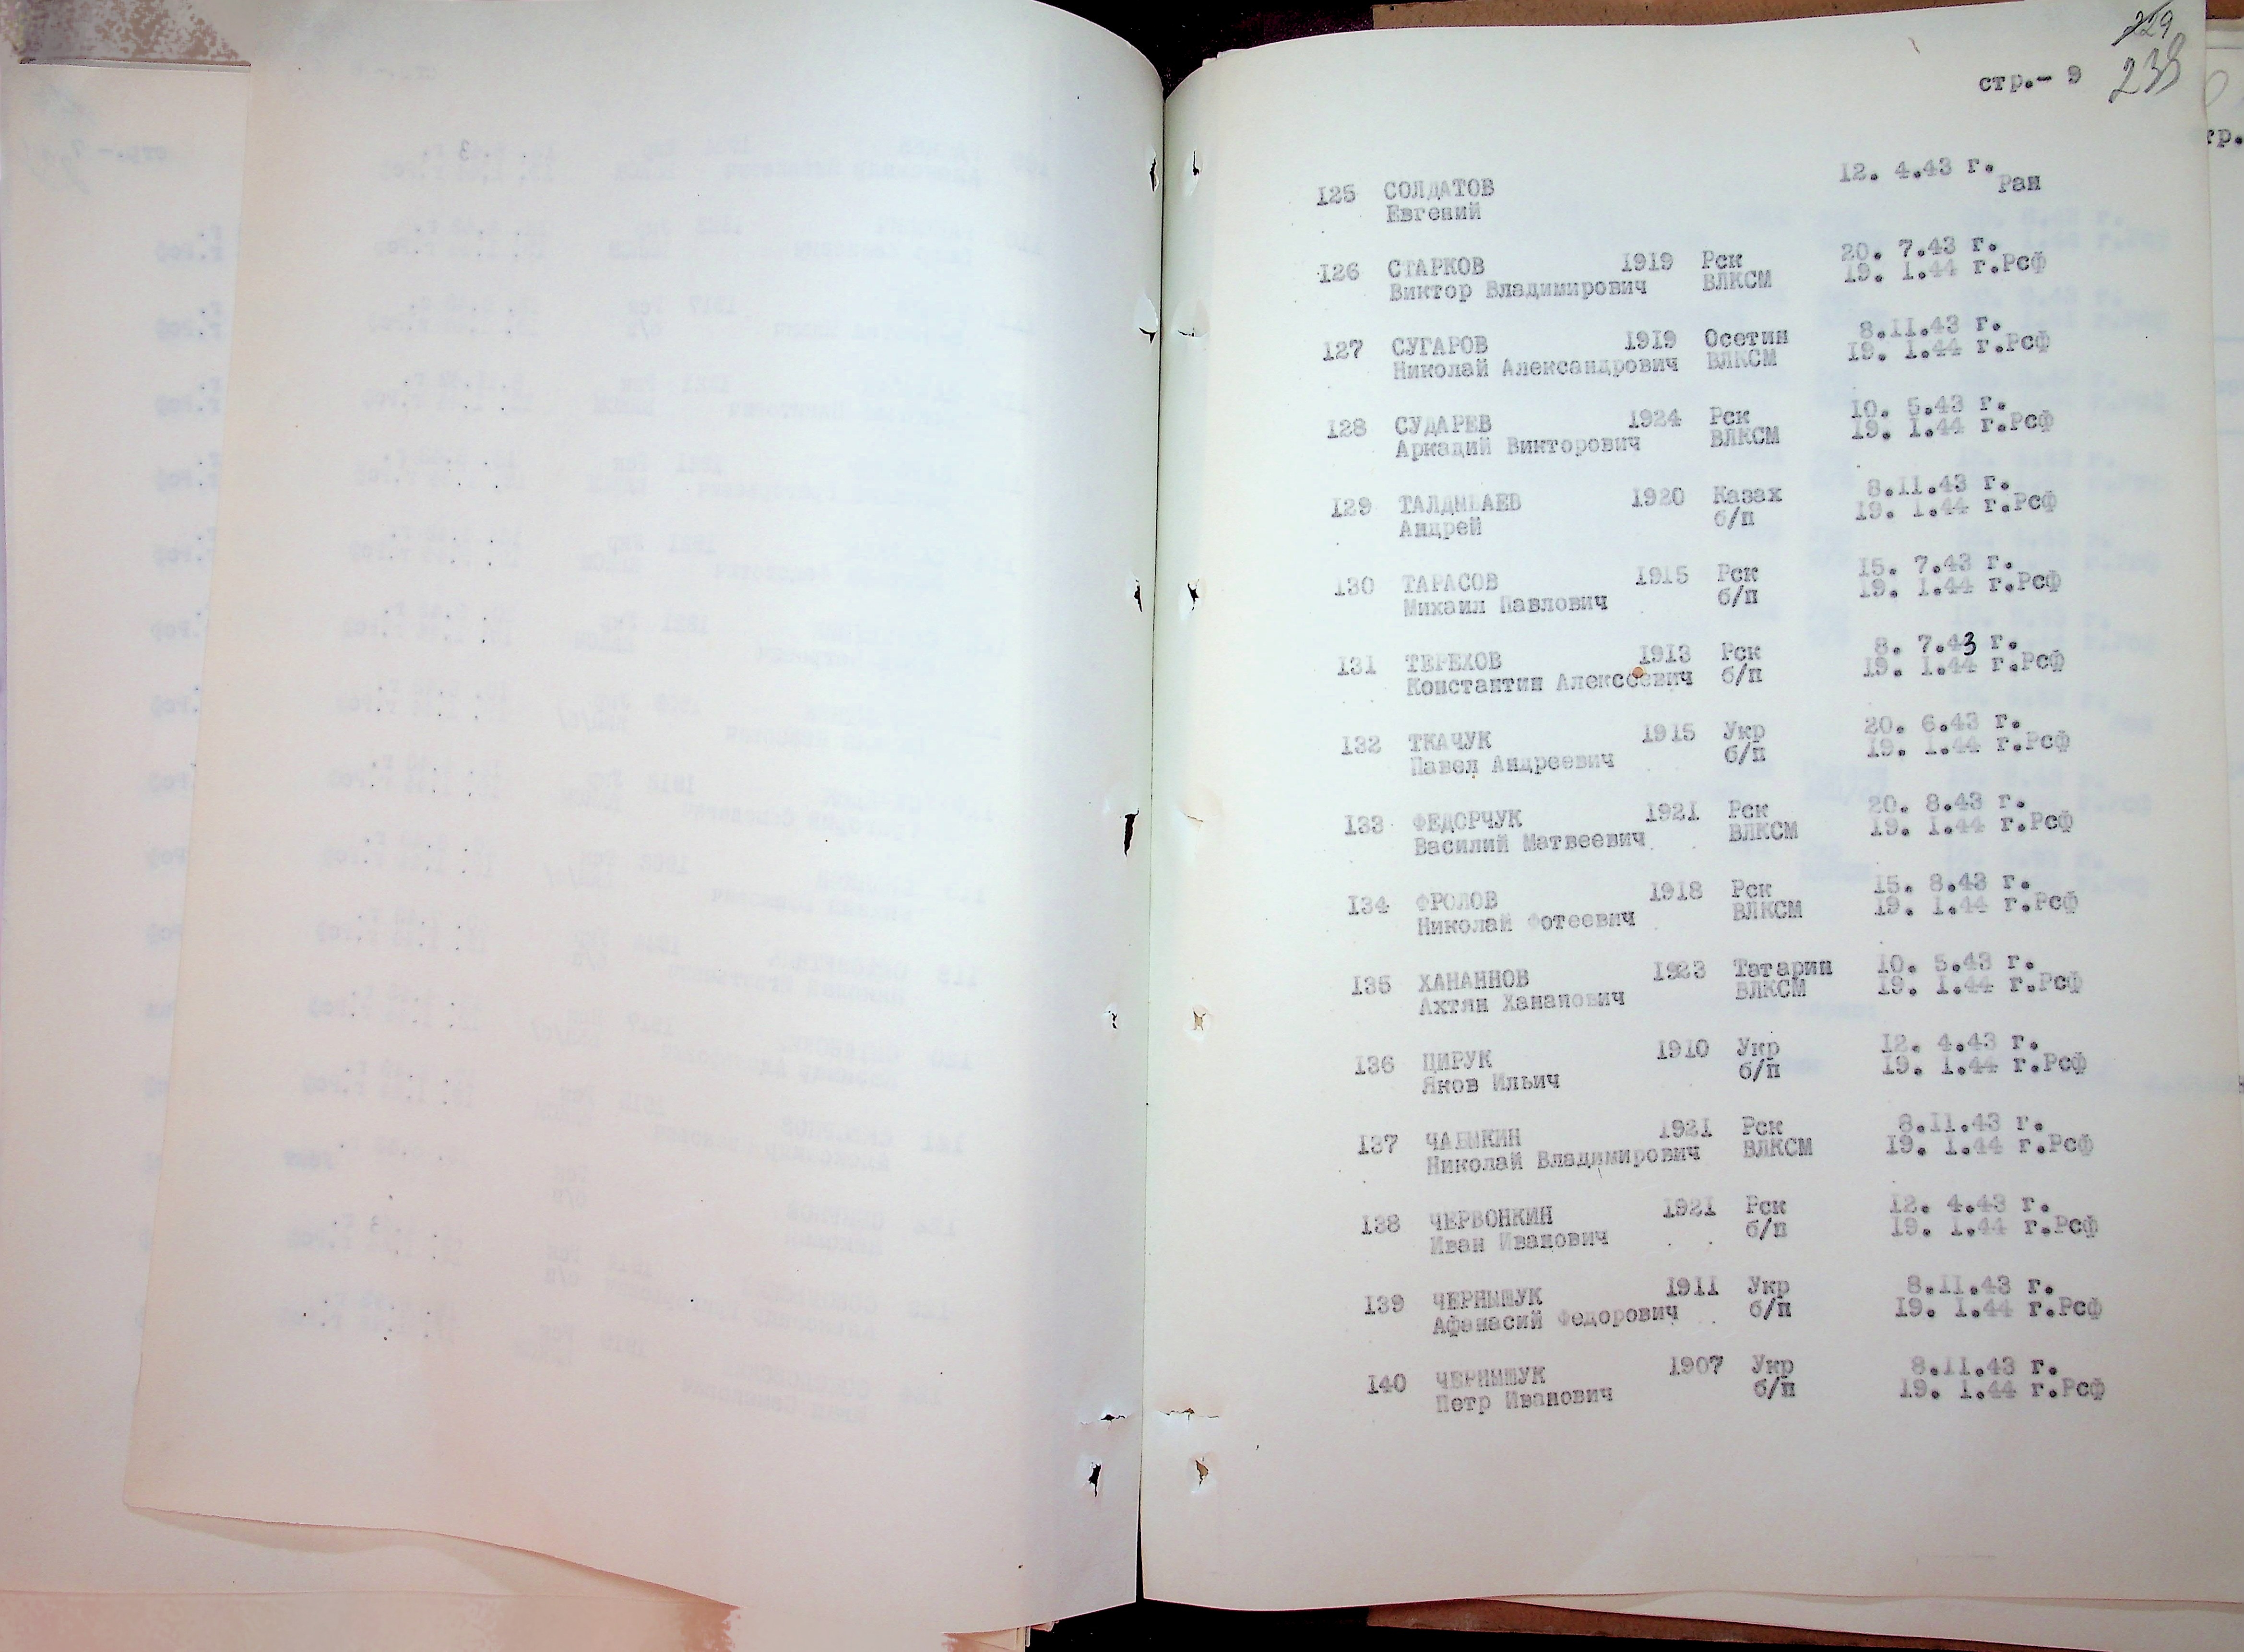 229
238
стр.- 9
125 СОЛДАТОВ 12. 4.43 г.
Евгений Ран
126 СТАРКОВ 1919 Рск 20. 7.43 г.
Виктор Владимирович ВЛКСМ 19. 1.44 г.Рсф
127 СУГАРОВ 1919 Осетин 8.11.43 г.
Николай Александрович ВЛКСМ 19. 1.44 г.Рсф
128 СУДАРЕВ 1924 Рск 10. 5.43 г.
Аркадий Викторович ВЛКСМ 19. 1.44 г.Рсф
129 ТАЛДЫБАЕВ 1920 Казах 8.11.43 г.
Андрей б/п 19. 1.44 г.Рсф
130 ТАРАСОВ 1915 Рск 15. 7.43 г.
Михаил Павлович б/п 19. 1.44 г.Рсф
131 ТЕРЕХОВ 1913 Рск 8. 7.43 г.
Константин Алексеевич б/п 19. 1.44 г.Рсф
132 ТКАЧУК 1915 Укр 20. 6.43 г.
Павел Андреевич б/п 19. 1.44 г.Рсф
133 ФЕДОРЧУК 1921 Рск 20. 8.43 г.
Василий Матвеевич ВЛКСМ 19. 1.44 г.Рсф
134 ФРОЛОВ 1918 Рск 15. 8.43 г.
Николай Фотеевич ВЛКСМ 19. 1.44 г.Рсф
135 ХАНАННОВ 1923 Татарин 10. 5.43 г.
Ахтян Хананович ВЛКСМ 19. 1.44 г.Рсф
136 ЦИРУК 1910 Укр 12. 4.43 г.
Яков Ильич б/п 19. 1.44 г.Рсф
137 ЧАБЫКИН 1921 Рск 8.11.43 г.
Николай Владимирович ВЛКСМ 19. 1.44 г.Рсф
138 ЧЕРВОНКИН 1921 Рск 12. 4.43 г.
Иван Иванович б/п 19. 1.44 г.Рсф
139 ЧЕРНЫШУК 1911 Укр 8.11.43 г.
Афанасий Федорович б/п 19. 1.44 г.Рсф
140 ЧЕРНЫШУК 1907 Укр 8.11.43 г.
Петр Иванович б/п 19. 1.44 г.Рсф